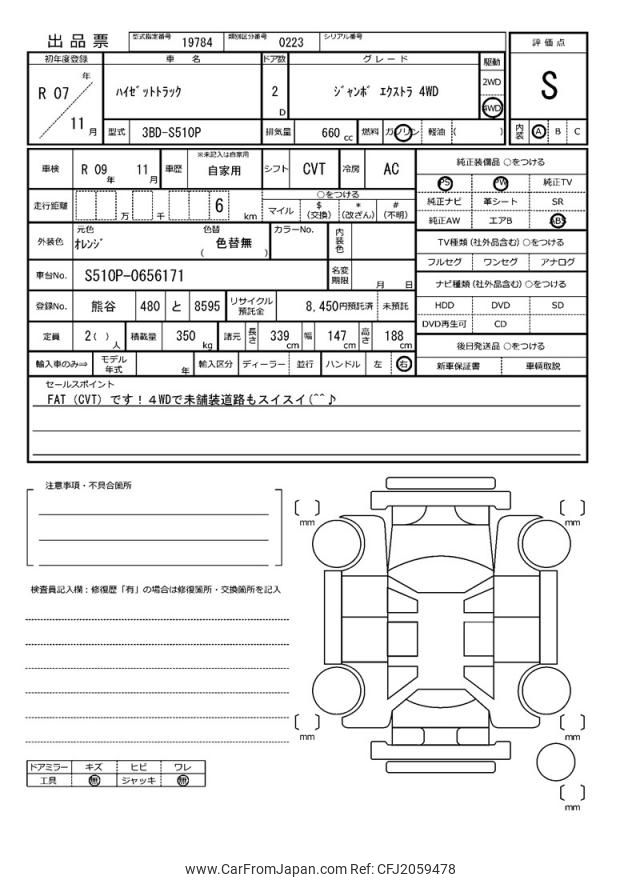 出品票 型式指定番号 19784 類別区分番号 0223 シリアル番号
初年度登録 車 名 ドア数 グレード 駆動 評価点
R 07 年 11 月 ハイゼットトラック 2 D ジャンボ エクストラ 4WD 2WD 4WD S
型式 3BD-S510P 排気量 660 cc 燃料 ガソリン 軽油 ( ) 内装 A B C
車検 R 09 年 11 月 車歴 ※未記入は自家用 自家用 シフト CVT 冷房 AC
純正装備品 ○をつける
PS PW 純正TV
純正ナビ 革シート SR
純正AW エアB ABS
走行距離 万 千 6 km ○をつける
マイル $ (交換) * (改ざん) # (不明)
外装色 元色 オレンジ 色替 ( 色替無 ) カラーNo. 内装色
TV種類 (社外品含む) ○をつける
フルセグ ワンセグ アナログ
車台No. S510P-0656171 名変期限 月 日
ナビ種類 (社外品含む) ○をつける
登録No. 熊谷 480 と 8595 リサイクル預託金 8,450円預託済 未預託
HDD DVD SD
DVD再生可 CD
定員 2( ) 人 積載量 350 kg 諸元 長さ 339 cm 幅 147 cm 高さ 188 cm
後日発送品 ○をつける
輸入車のみ⇒ モデル年式 年 輸入区分 ディーラー 並行 ハンドル 左 右
新車保証書 車輌取説
セールスポイント
FAT (CVT) です！４WDで未舗装道路もスイスイ(^^♪
注意事項・不具合箇所
検査員記入欄：修復歴「有」の場合は修復箇所・交換箇所を記入
mm
mm
mm
mm
mm
ドアミラー キズ ヒビ ワレ
工具 無 ジャッキ 無
www.CarFromJapan.com Ref: CFJ2059478